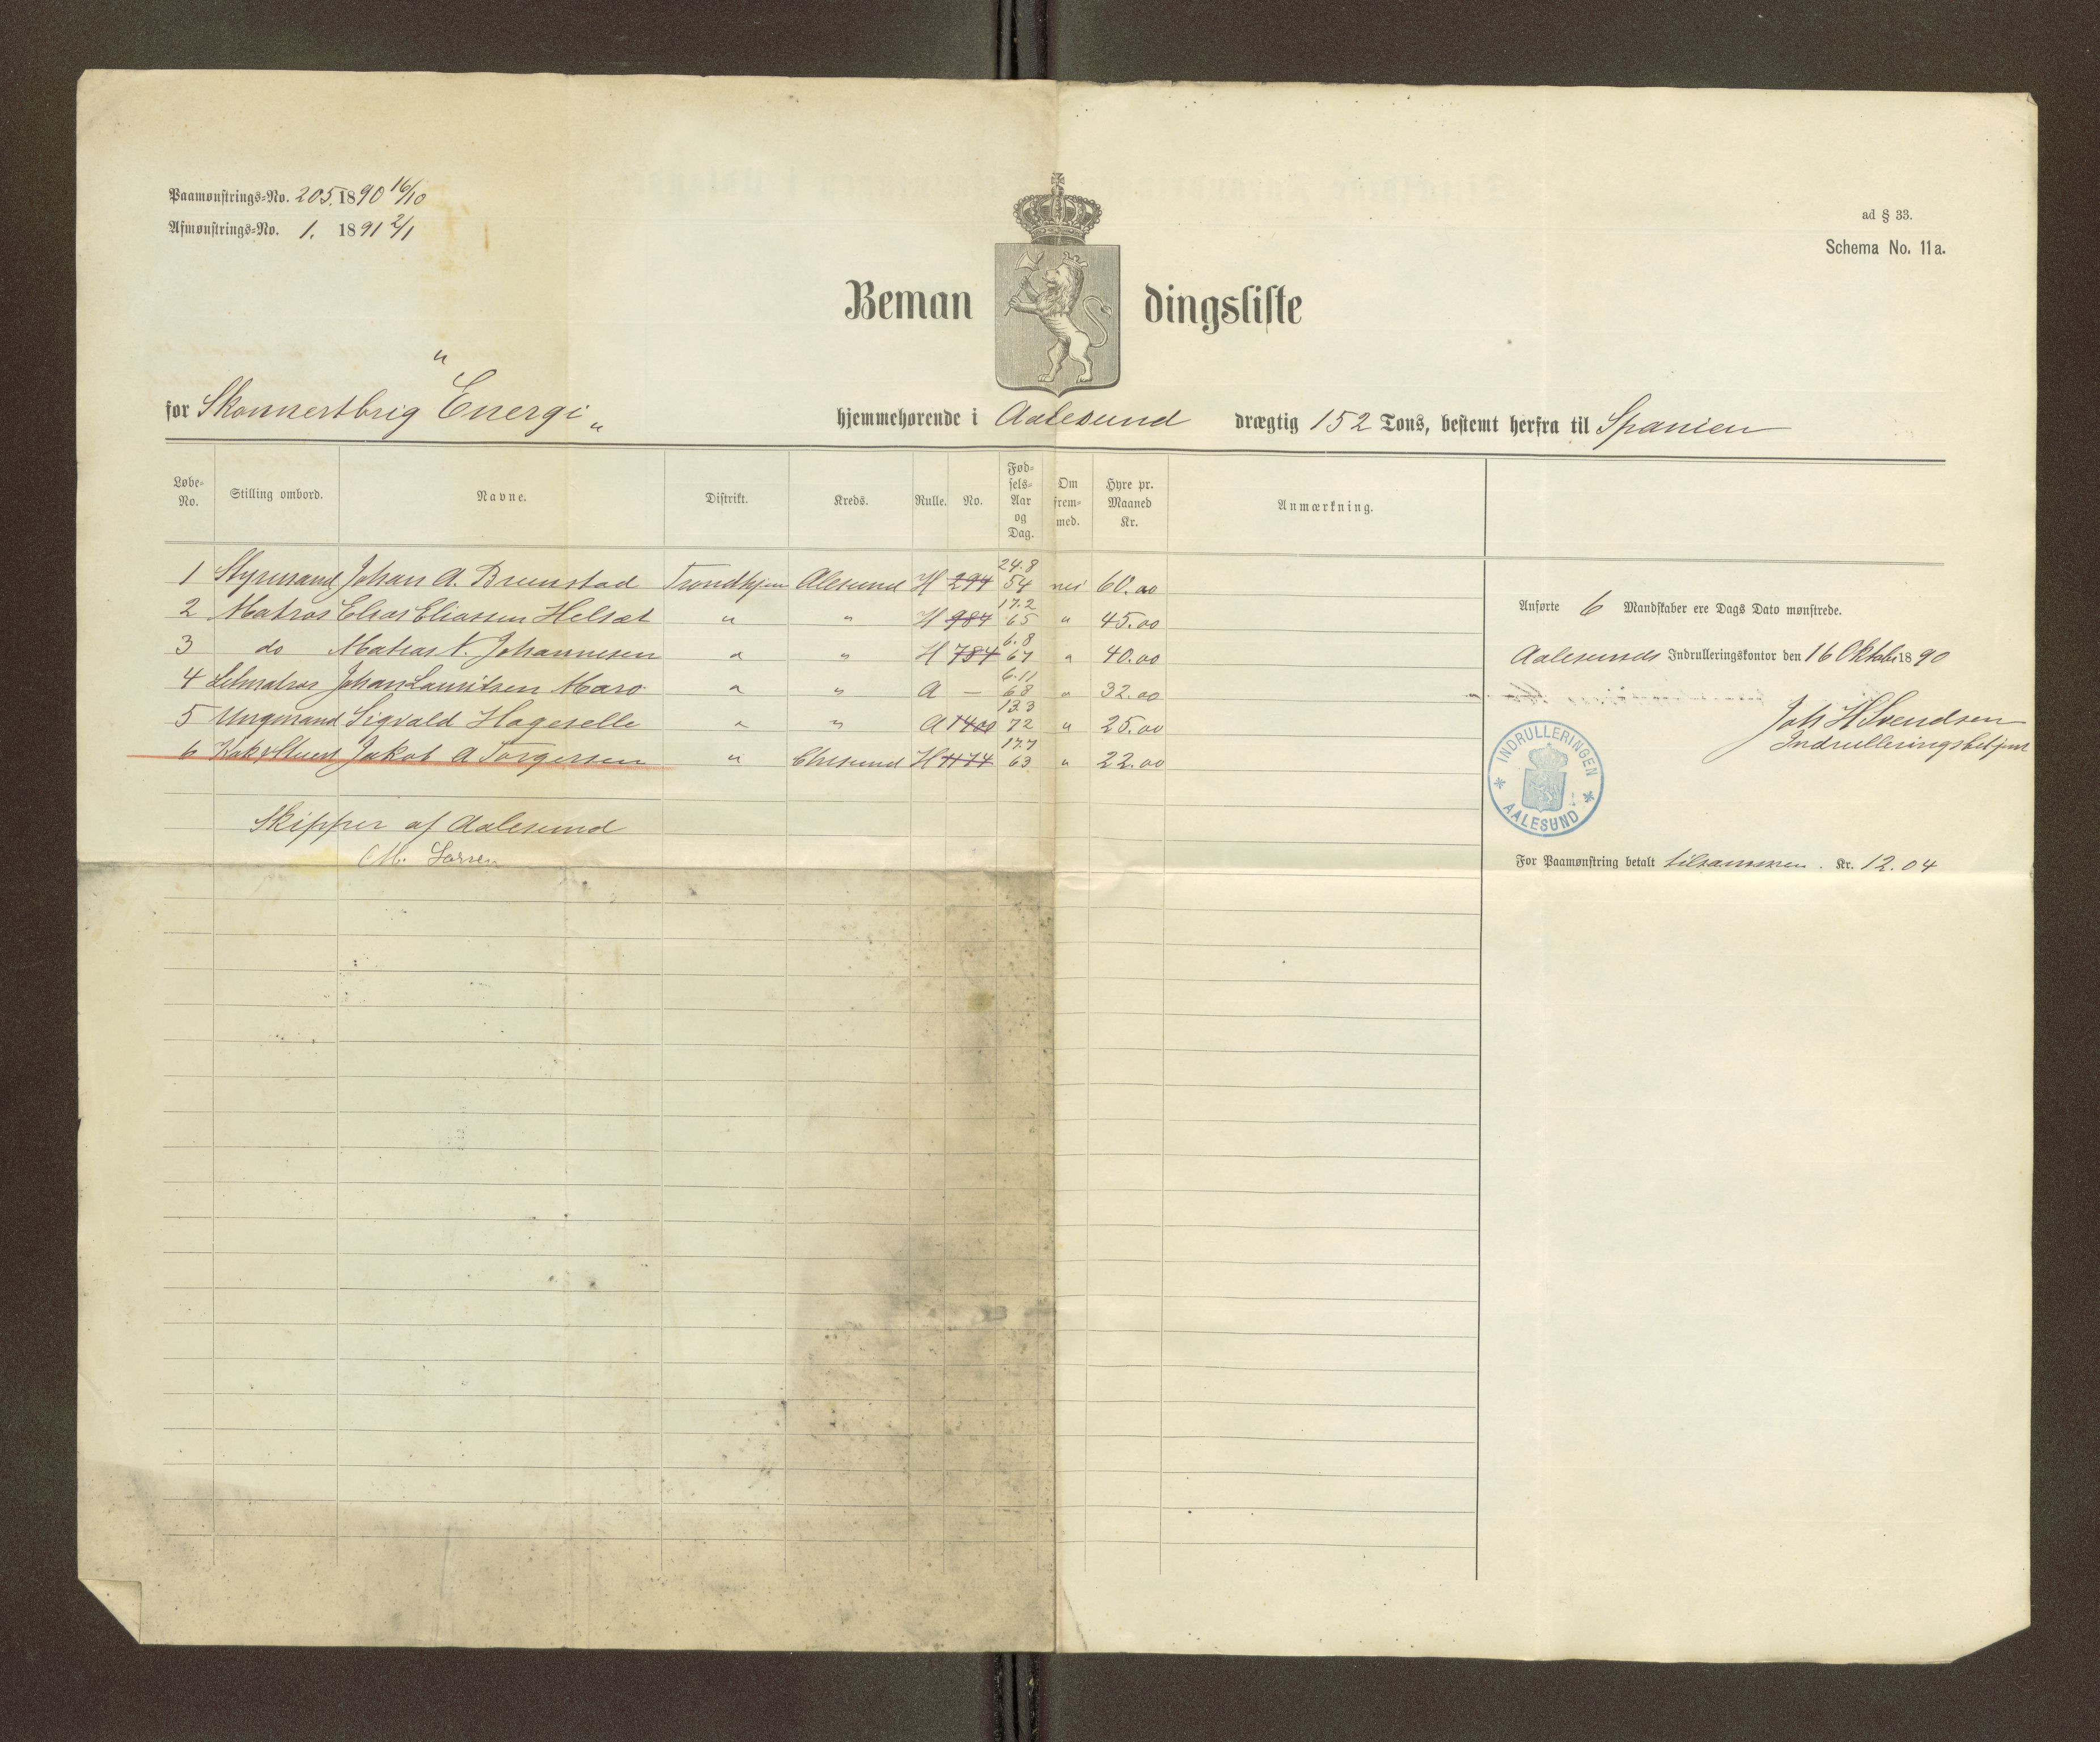 Paamønstrings-No. 205. 1890 16/10
Afmønstrings-No. 1. 1891 2/1
ad § 33.
Schema No. 11a.
Bemandingsliste
for Skonnertbrig "Energi" hjemmehørende i Aalesund drægtig 152 Tons, bestemt herfra til Spanien
Løbe-No. Stilling ombord. Navne. Distrikt. Kreds. Rulle. No. Fødsels-Aar og Dag. Om fremmed. Hyre pr. Maaned Kr. Anmærkning.
1 Styrmand Johan A. Brunstad Trondhjem Alesund H 294 24.8 54 nei 60.00
2 Matros Elias Eliassen Helset " " H 984 17.2 65 " 45.00
3 do Matias N. Johannesen " " H 784 6.8 67 " 40.00
4 Letmatros Johan Lauritsen Maro " " A — 6.11 68 " 32.00
5 Ungmand Sigvald Hageselle " " A 1400 13.3 72 " 25.00
6 Kok & Stuert Jakob A Torgersen " H 1174 17.7 63 " 22.00
Skipper af Aalesund
M. Larsen
Anførte 6 Mandskaber ere Dags Dato mønstrede.
Aalesunds Indrulleringskontor den 16 Oktober 1890
Joh H Svendsen
Indrulleringsbetjent
INDRULLERINGEN
* AALESUND *
For Paamønstring betalt tilsammen. Kr. 12.04